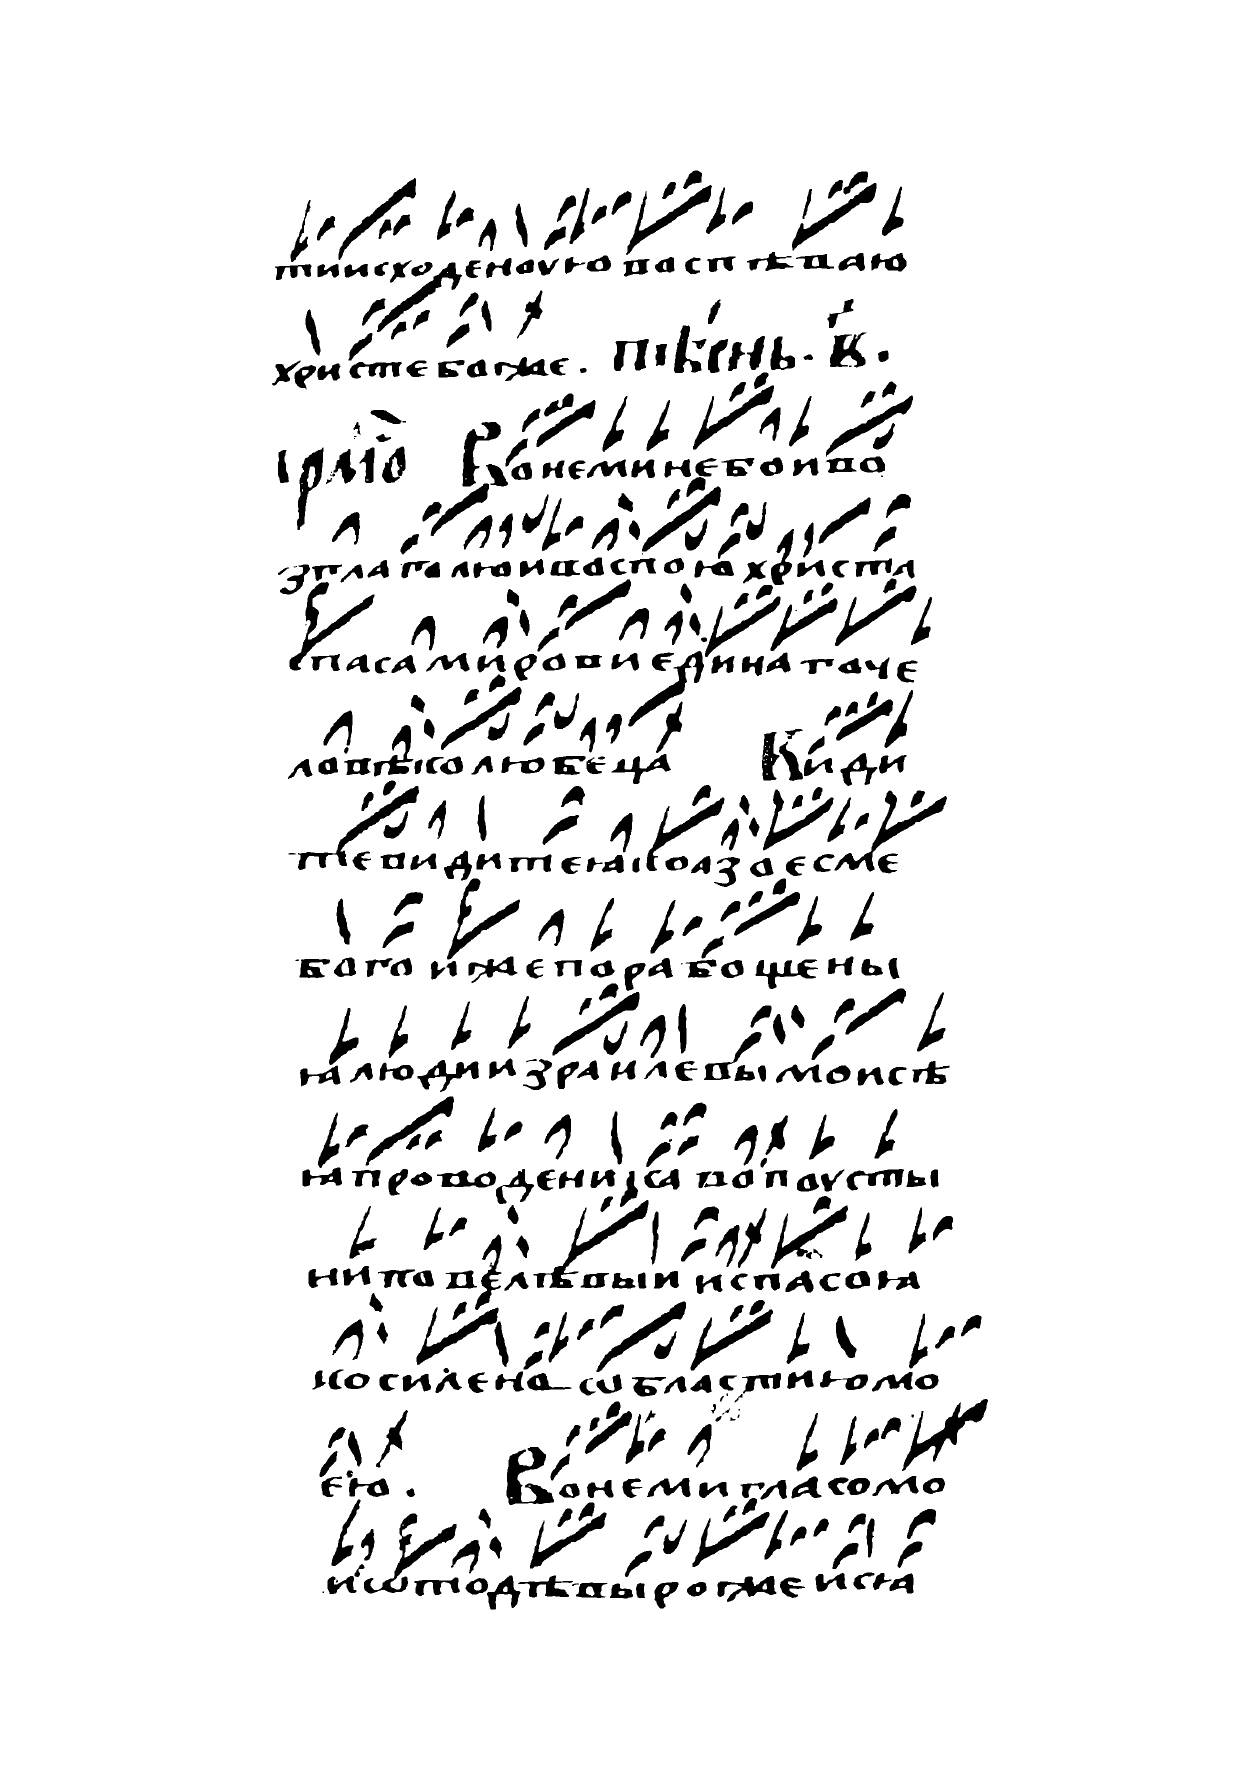 тиисходеноуювоспѣваю
христебоже. Пѣснь. в҃.
ірмо Вонеминебоиво
зглаголюивоспоюхриста
спасамировиединагоче
ловѣколюбеца Види
тевидитеꙗкоазоесме
богоижепорабощены
ꙗлюдииизраилевымоисѣ
ꙗпроводенисавопоусты
ниповелѣвыиииспасоꙗ
косиленоѡбластиюмо
ею. Вонемигласомо
иѡтодѣвырожеися